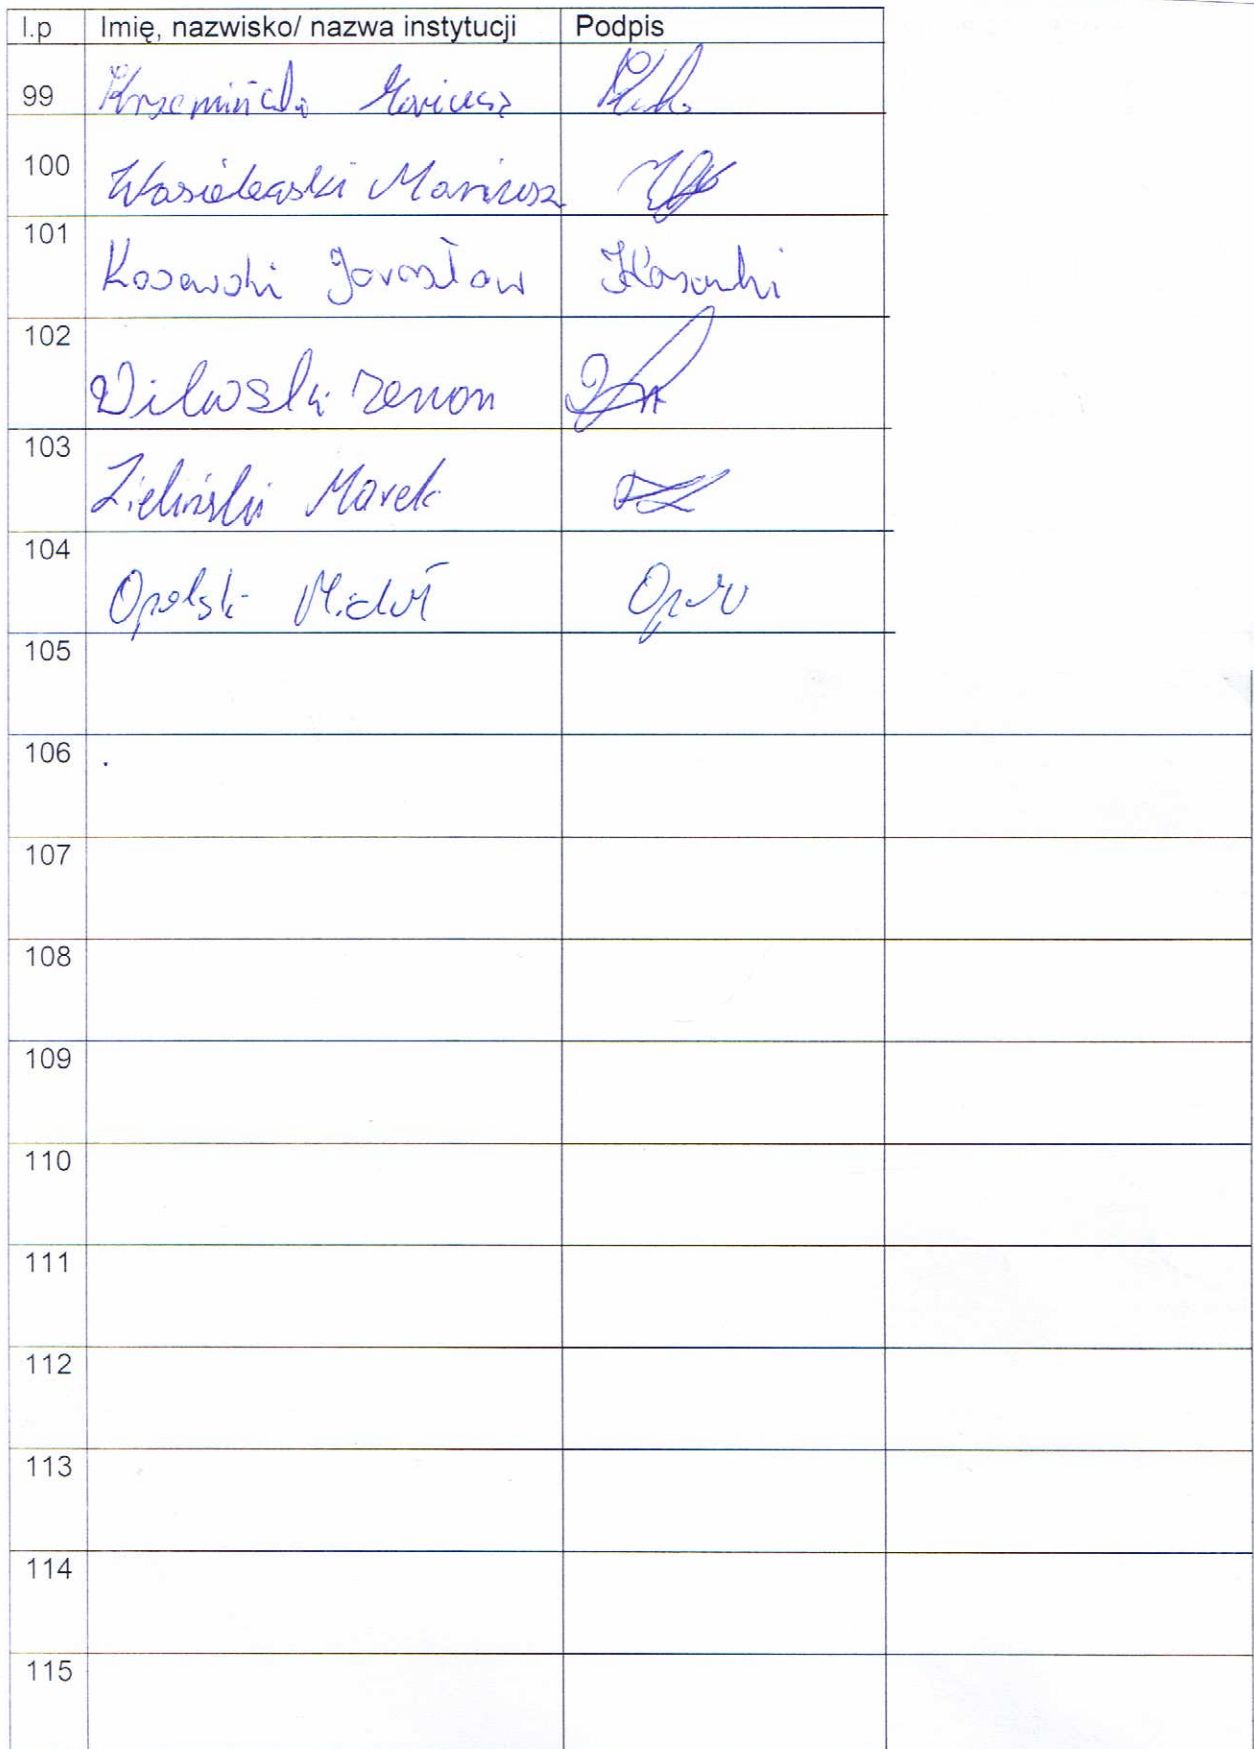 l.p Imię, nazwisko/ nazwa instytucji Podpis
99 Krzemiński Mariusz
100 Wasielewski Mariusz
101 Kosowski Jarosław Kosowski
102 Zenon
103 Zieliński Marek
104 Opolski Michał
105
106
107
108
109
110
111
112
113
114
115